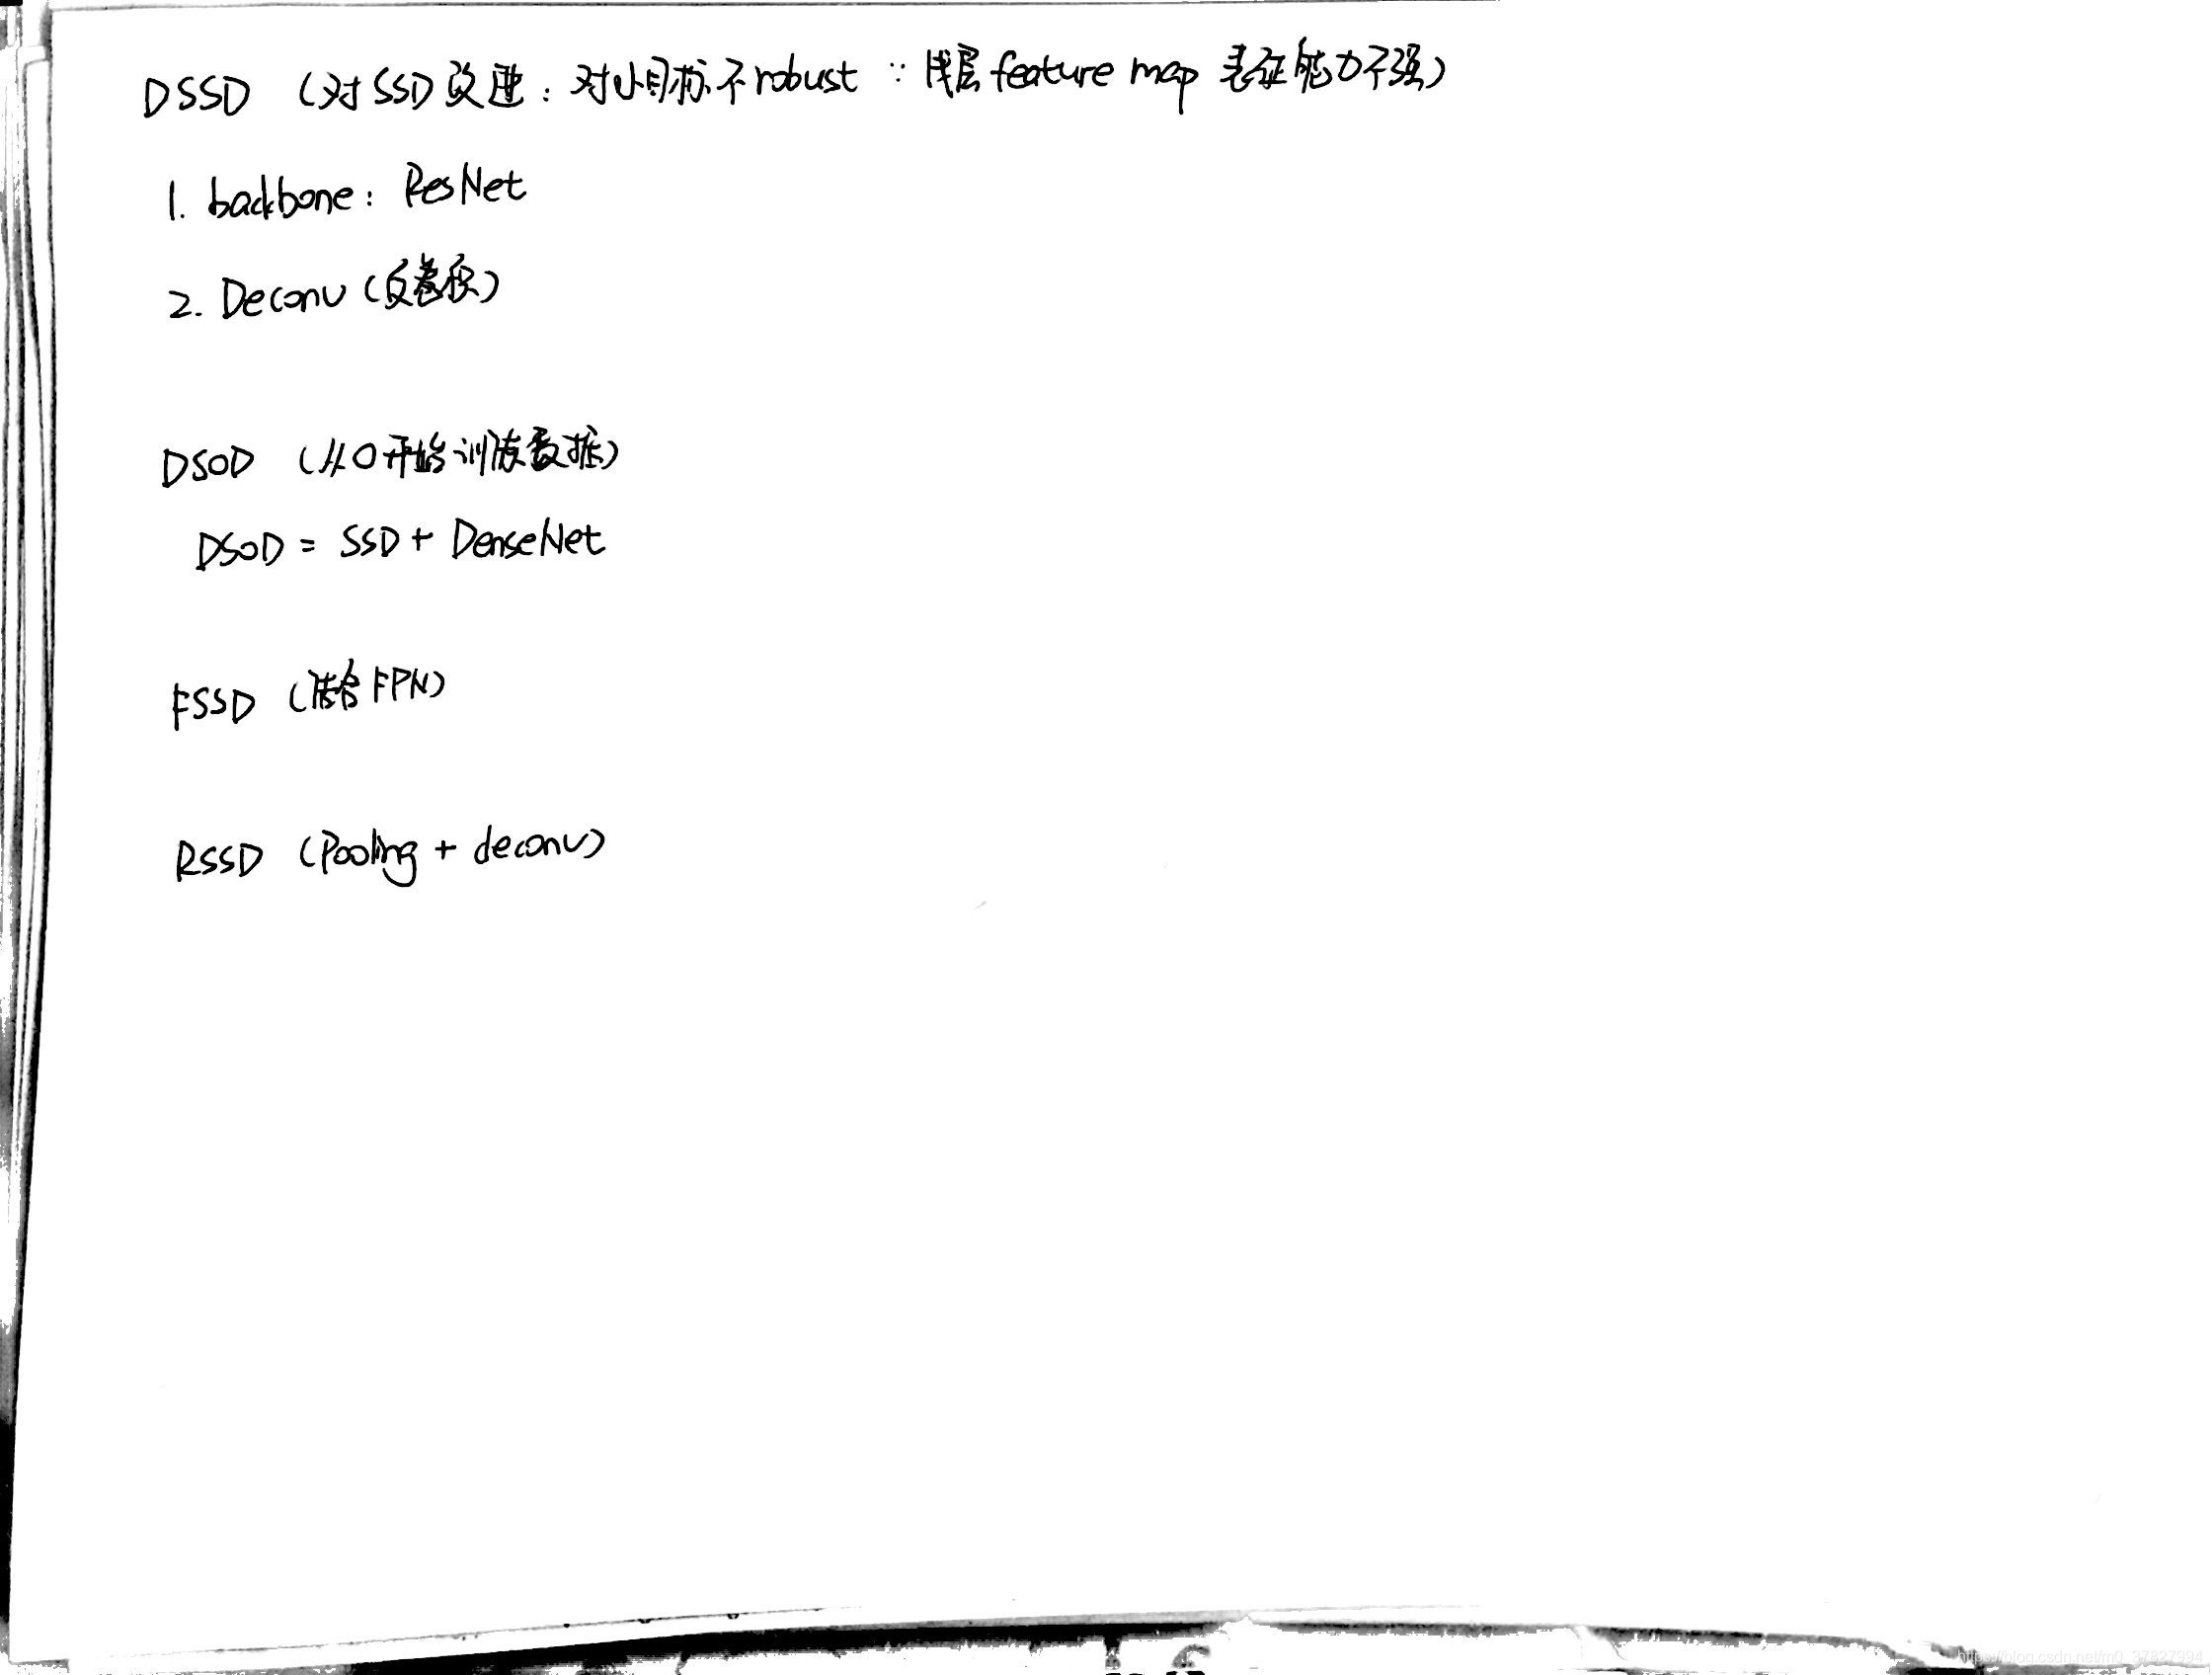 DSSD (对SSD改进: 对小目标不robust ∵ 浅层feature map 表征能力不强)
1. backbone: ResNet
2. Deconv (反卷积)
DSOD (从0开始训练数据)
DSOD = SSD + DenseNet
FSSD (借鉴FPN)
RSSD (Pooling + deconv)
https://blog.csdn.net/m0_37827994